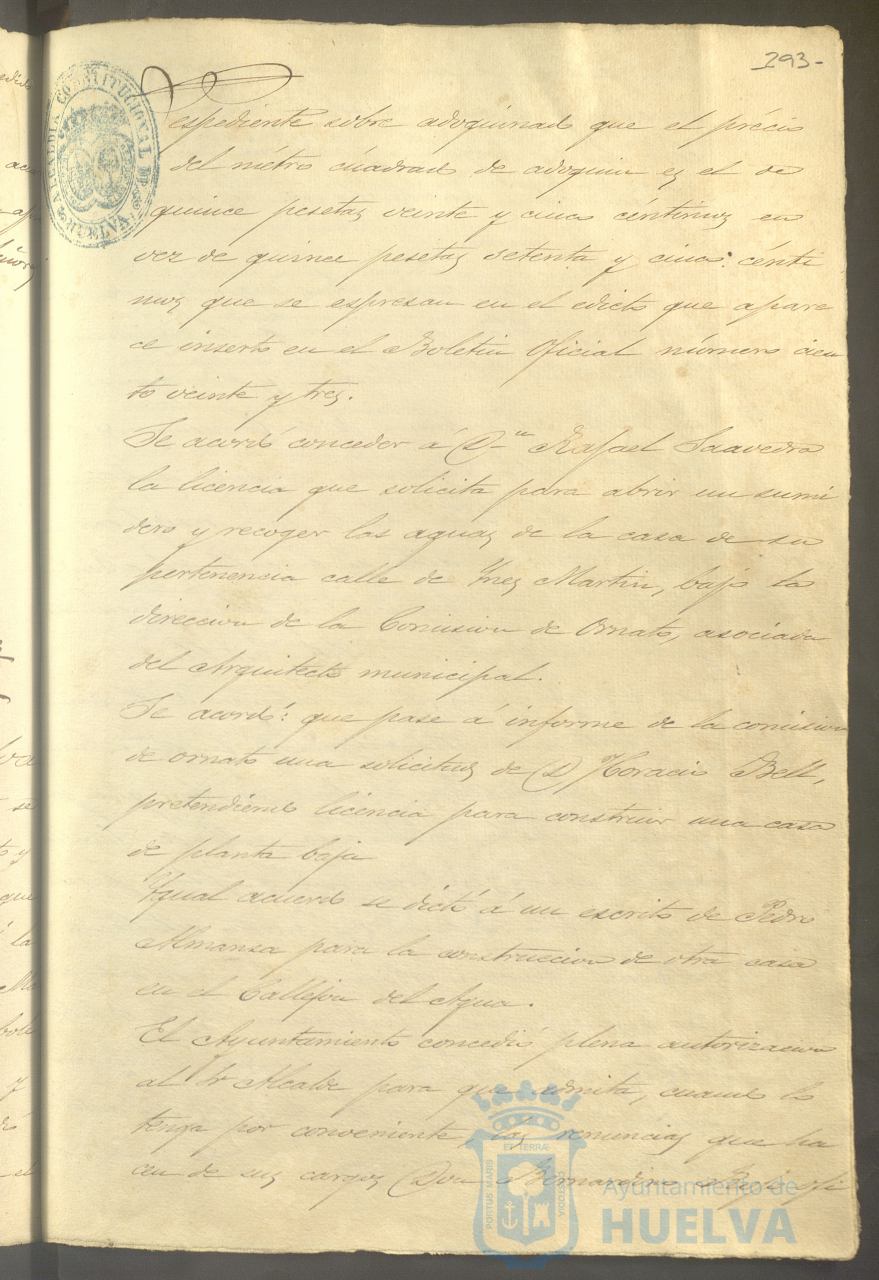 293-
ALCALDIA CONSTITUCIONAL DE HUELVA
espediente sobre adoquinado que el precio
del métro cuadrado de adoquin es el de
quince pesetas veinte y cinco céntimos en
vez de quince pesetas setenta y cinco: cénti
mos que se espresan en el edicto que apare
ce inserto en el Boletin Oficial número cien
to veinte y tres.
Se acordó conceder á Dn Rafael Saavedra
la licencia que solicita para abrir un sumi
dero y recoger las aguas de la casa de su
pertenencia calle de Ynes Martin, bajo la
direccion de la Comision de Ornato, asociada
del Arquitecto municipal.
Se acordó: que pase á informe de la comision
de ornato una solicitud de D Horacio Bell,
pretendiendo licencia para construir una casa
de planta baja
Ygual acuerdo se dictó á un escrito de Pedro
Almansa para la construccion de otra casa
en el Callejon del Agua.
El Ayuntamiento concedió plena autorizacion
al Sr Alcalde para que admita, cuando lo
tenga por conveniente, las renuncias que ha
cen de sus cargos Don Bernardino ofi
PORTUS MARIS ET TERRÆ CUSTODIA
Ayuntamiento de
HUELVA